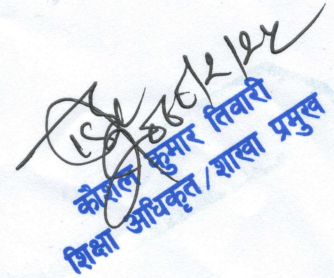 कौशल कुमार तिवारी
शिक्षा अधिकृत / शाखा प्रमुख